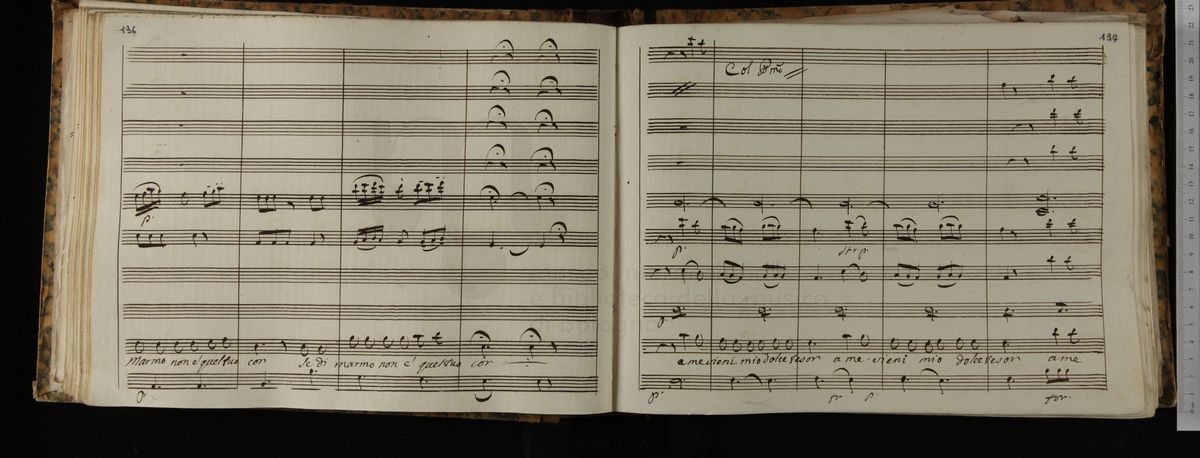 136
p.
Marmo non è quel tuo cor se di marmo non è quel tuo cor
p.
137
Col Pmo
p.
str p.
p.
a me vieni mio dolce tesor a me vieni mio dolce tesor a me
p. tr p. for.